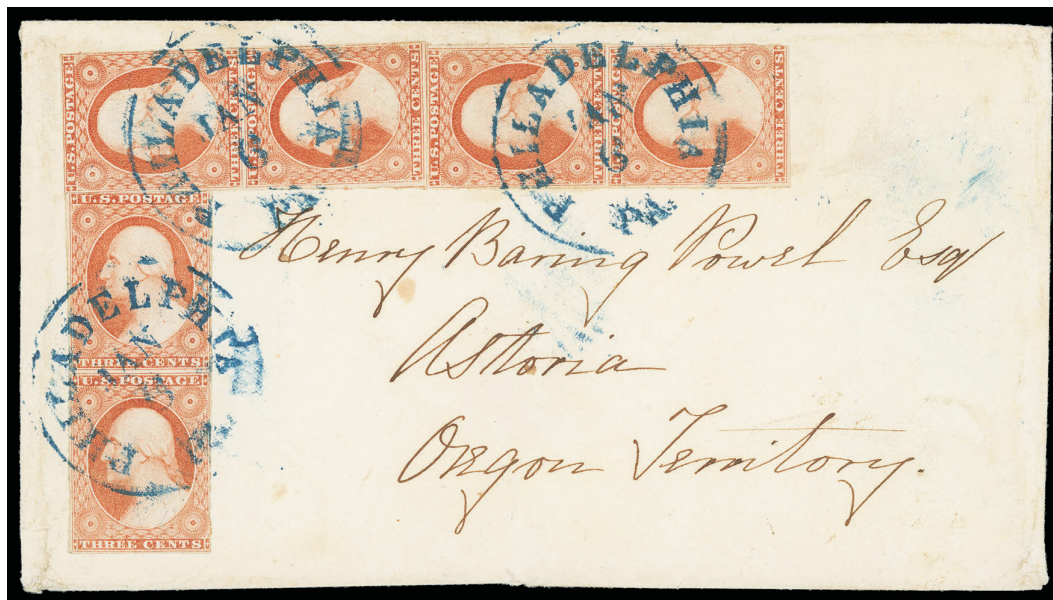 U.S. POSTAGE
THREE CENTS
U.S. POSTAGE
THREE CENTS
U.S. POSTAGE
THREE CENTS
U.S. POSTAGE
THREE CENTS
PHILADELPHIA
JAN
PA.
PHILADELPHIA
JAN
6
PA.
U.S. POSTAGE
THREE CENTS
U.S. POSTAGE
THREE CENTS
PHILADELPHIA
JAN
Henry Baring Powel Esq
Astoria
Oregon Territory.